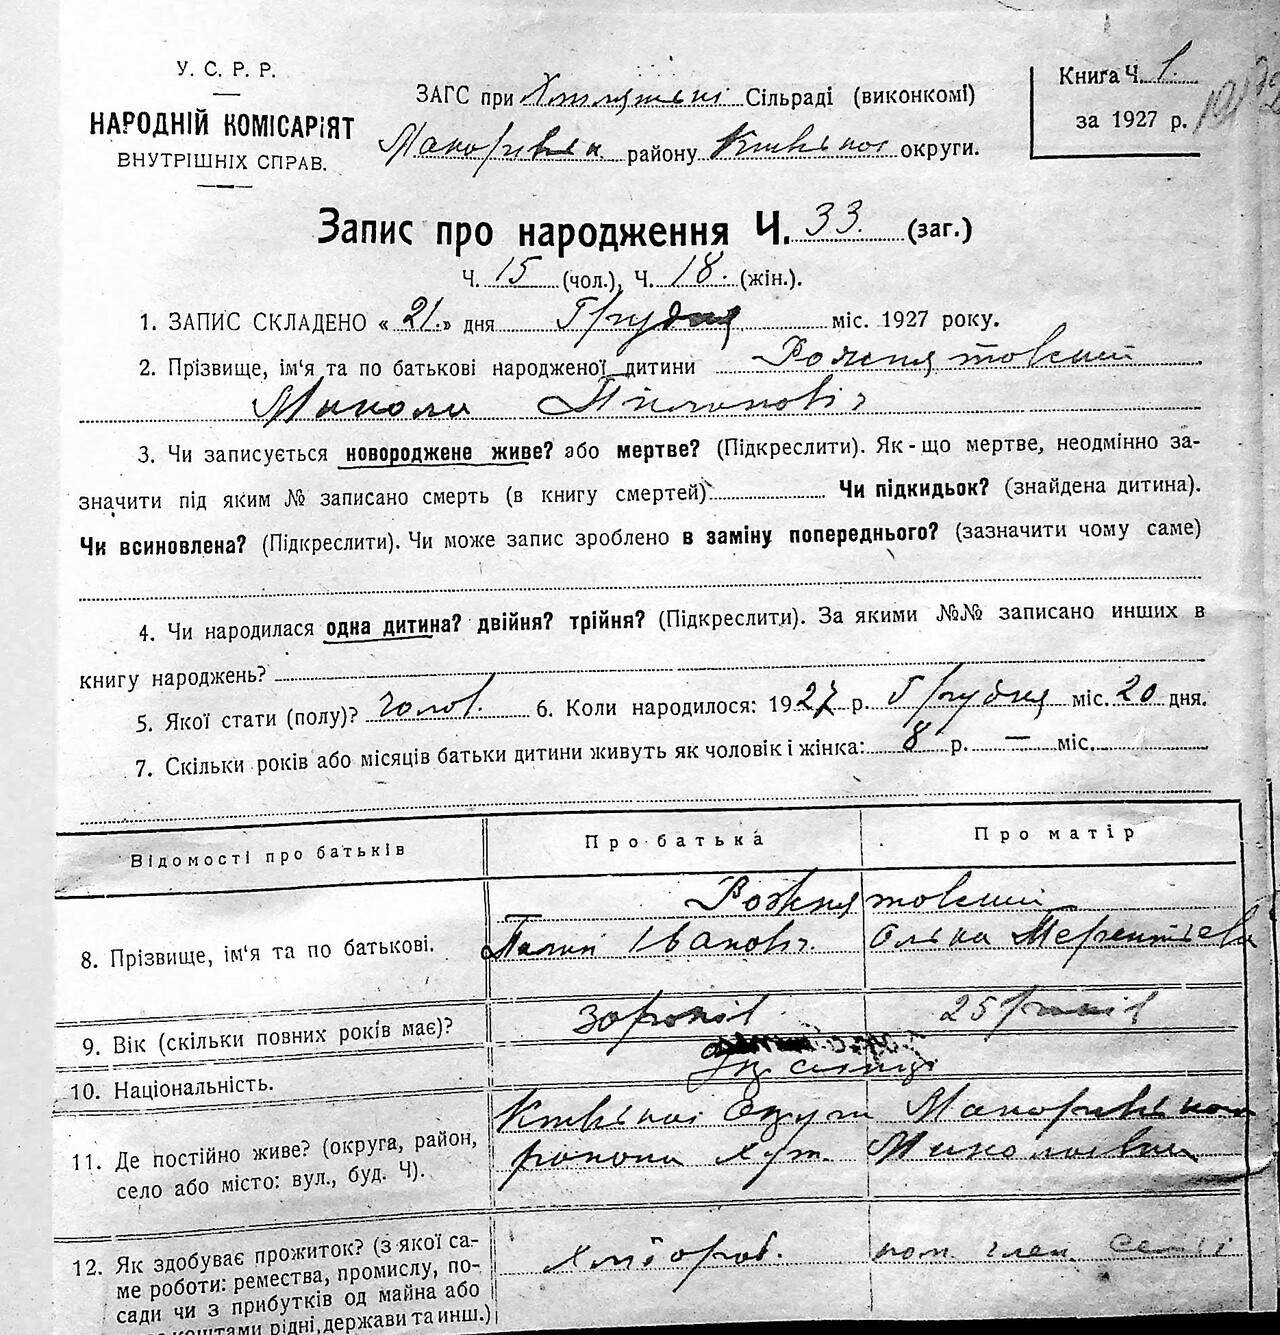 У. С. Р. Р.
НАРОДНІЙ КОМІСАРІЯТ
ВНУТРІШНІХ СПРАВ.
ЗАГС при Сільраді (виконкомі)
Макорівськ. району Київської округи.
Книга Ч. 1.
за 1927 р.
Запис про народження Ч. 33. (заг.)
Ч. 15 (чол.), Ч. 18. (жін.).
1. ЗАПИС СКЛАДЕНО « 21. » дня Грудня міс. 1927 року.
2. Прізвище, ім'я та по батькові народженої дитини Рожнятовский
Микола Пилипович
3. Чи записується новороджене живе? або мертве? (Підкреслити). Як-що мертве, неодмінно за-
значити під яким № записано смерть (в книгу смертей) Чи підкидьок? (знайдена дитина).
Чи всиновлена? (Підкреслити). Чи може запис зроблено в заміну попереднього? (зазначити чому саме)
4. Чи народилася одна дитина? двійня? трійня? (Підкреслити). За якими №№ записано инших в
книгу народжень?
5. Якої стати (полу)? чолов. 6. Коли народилося: 1927 р. Грудня міс. 20 дня.
7. Скільки років або місяців батьки дитини живуть як чоловік і жінка: 8 р. — міс.
Відомості про батьків Про батька Про матір
8. Прізвище, ім'я та по батькові. Рожнятовский
Іванович. Ольга Терентієва
9. Вік (скільки повних років має)? 30 років 25 років
10. Національність. українці
11. Де постійно живе? (округа, район, село або місто: вул., буд. Ч). Київської Округи Макорівського
району Хут. Миколаївка
12. Як здобуває прожиток? (з якої са-
ме роботи: ремества, промислу, по-
сади чи з прибутків од майна або
коштами рідні, держави та инш.)
Хлібороб. член сем'ї